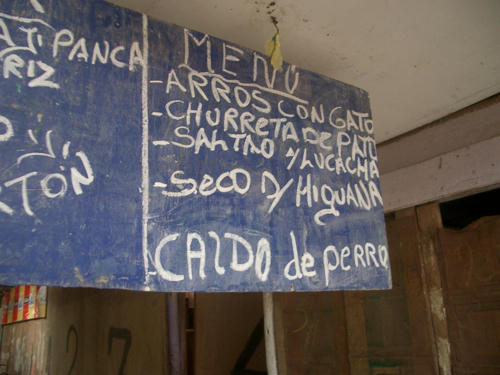 ATIPANCA
RIZ
RTÓN
MENÚ
-ARROS CON GATO
-CHURRETA DE PATO
-SALTAO D/LUCACHA
-SECO D/HIGUANA
CALDO de PERRO
27